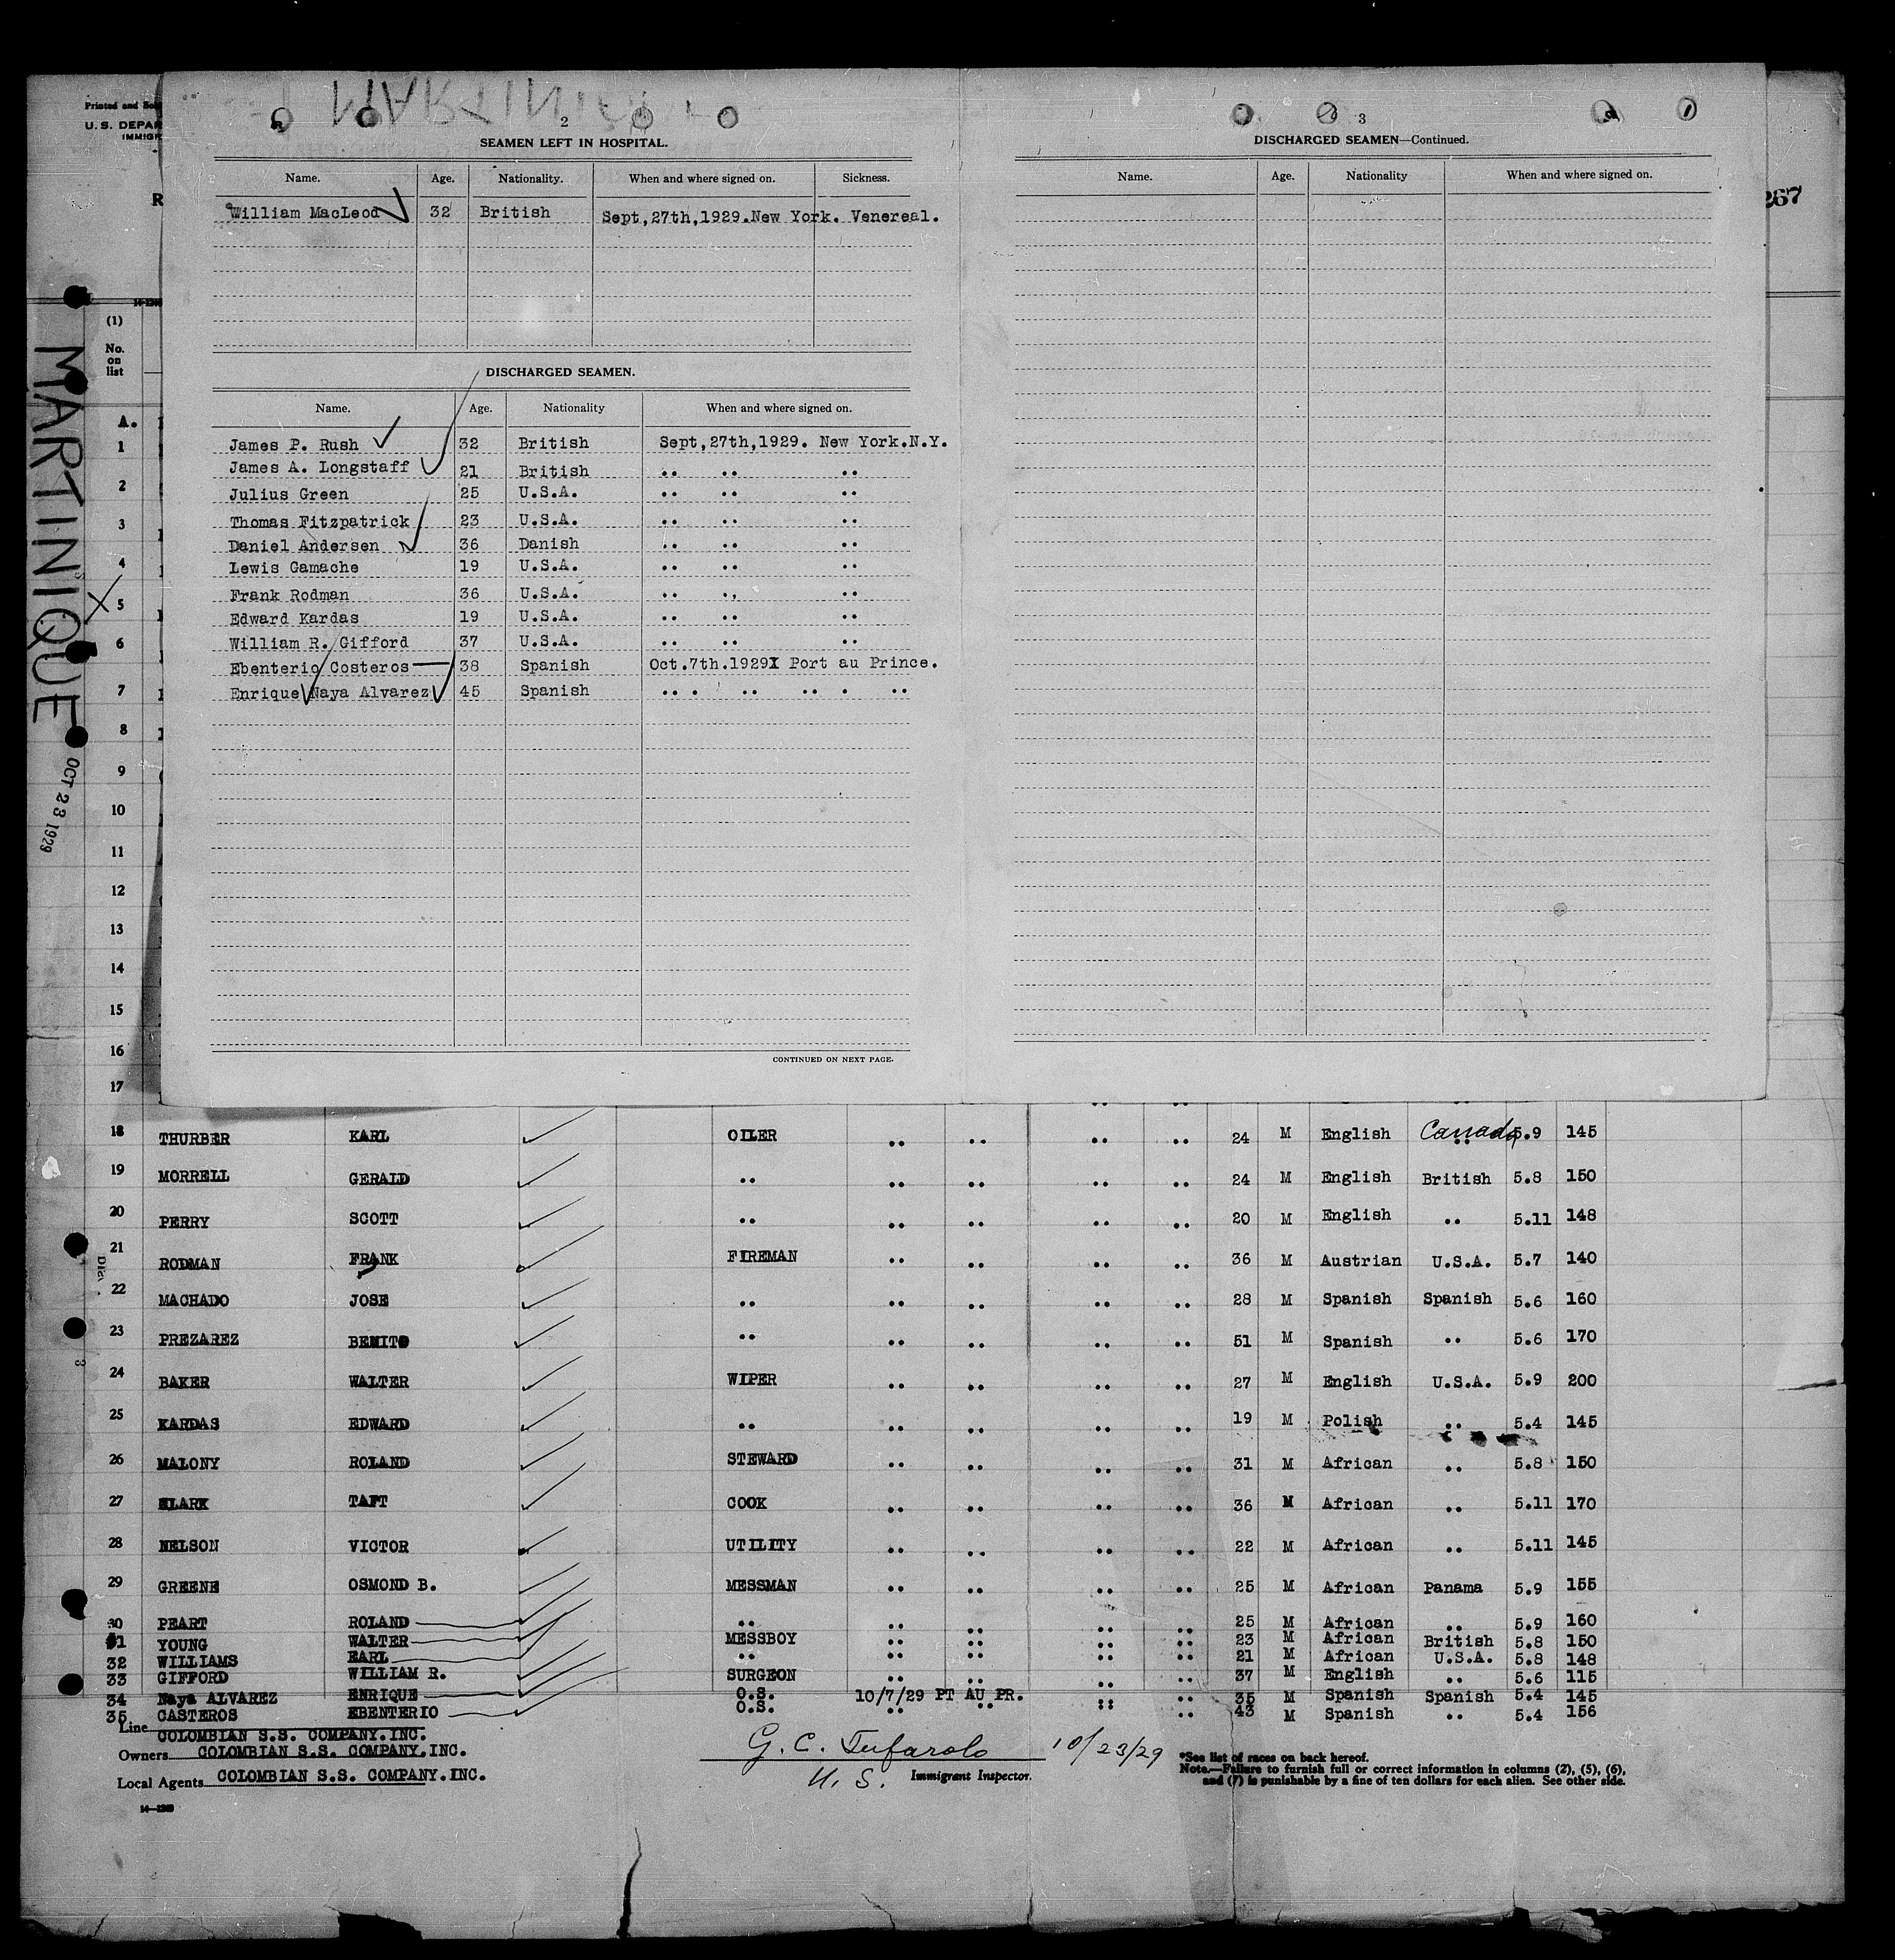 Printed and Sol
U. S. DEPAR
IMMIGR
R
267
(1)
No.
on
list
A.
1
2
3
4
5
6
7
8
9
10
11
12
13
14
15
16
17
MARTINIQUE
OCT 23 1929
2
SEAMEN LEFT IN HOSPITAL.
Name. Age. Nationality. When and where signed on. Sickness.
William MacLeod 32 British Sept,27th,1929.New York. Venereal.
DISCHARGED SEAMEN.
Name. Age. Nationality When and where signed on.
James P. Rush 32 British Sept,27th,1929. New York.N.Y.
James A. Longstaff 21 British .. .. ..
Julius Green 25 U.S.A. .. .. ..
Thomas Fitzpatrick 23 U.S.A. .. .. ..
Daniel Andersen 36 Danish .. .. ..
Lewis Gamache 19 U.S.A. .. .. ..
Frank Rodman 36 U.S.A. .. ., ..
Edward Kardas 19 U.S.A. .. .. ..
William R. Gifford 37 U.S.A. .. .. ..
Ebenterio Costeros 38 Spanish Oct.7th.1929 Port au Prince.
Enrique Naya Alvarez 45 Spanish .. . .. .. . ..
CONTINUED ON NEXT PAGE.
3
DISCHARGED SEAMEN—Continued.
Name. Age. Nationality When and where signed on.
18 THURBER KARL OILER .. .. .. .. 24 M English Canada 5.9 145
19 MORRELL GERALD .. .. .. .. .. 24 M English British 5.8 150
20 PERRY SCOTT .. .. .. .. .. 20 M English .. 5.11 148
21 RODMAN FRANK FIREMAN .. .. .. .. 36 M Austrian U.S.A. 5.7 140
22 MACHADO JOSE .. .. .. .. .. 28 M Spanish Spanish 5.6 160
23 PREZAREZ BENITO .. .. .. .. .. 51 M Spanish .. 5.6 170
24 BAKER WALTER WIPER .. .. .. .. 27 M English U.S.A. 5.9 200
25 KARDAS EDWARD .. .. .. .. .. 19 M Polish .. 5.4 145
26 MALONY ROLAND STEWARD .. .. .. .. 31 M African .. 5.8 150
27 CLARK TAFT COOK .. .. .. .. 36 M African .. 5.11 170
28 NELSON VICTOR UTILITY .. .. .. .. 22 M African .. 5.11 145
29 GREENE OSMOND B. MESSMAN .. .. .. .. 25 M African Panama 5.9 155
30 PEART ROLAND .. .. .. .. .. 25 M African .. 5.9 160
31 YOUNG WALTER MESSBOY .. .. .. .. 23 M African British 5.8 150
32 WILLIAMS EARL .. .. .. .. .. 21 M African U.S.A. 5.8 148
33 GIFFORD WILLIAM R. SURGEON .. .. .. .. 37 M English .. 5.6 115
34 Naya ALVAREZ ENRIQUE O.S. 10/7/29 PT AU PR. .. .. 35 M Spanish Spanish 5.4 145
35 CASTEROS EBENTERIO O.S. .. .. .. .. 43 M Spanish .. 5.4 156
Line COLOMBIAN S.S. COMPANY.INC.
Owners COLOMBIAN S.S. COMPANY.INC.
Local Agents COLOMBIAN S.S. COMPANY.INC.
G. C. Tufarolo 10/23/29
U. S. Immigrant Inspector.
*See list of races on back hereof.
Note.—Failure to furnish full or correct information in columns (2), (5), (6),
and (7) is punishable by a fine of ten dollars for each alien. See other side.
14—1240